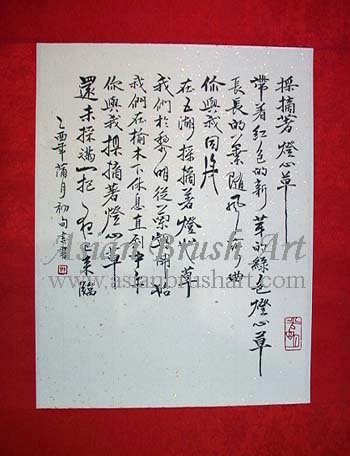 採摘著 燈心草
帶着紅色的新芽的綠色燈心草
長長的葉隨風曲
你與我同
在五湖採摘著燈心草
我們於黎明從蘭島開始
我們在榆木下休息直到中午
你與我採摘著燈心草
還未採滿一把夜已來臨
乙酉年蘭月初旬書
Asian Brush Art
www.asianbrushart.com